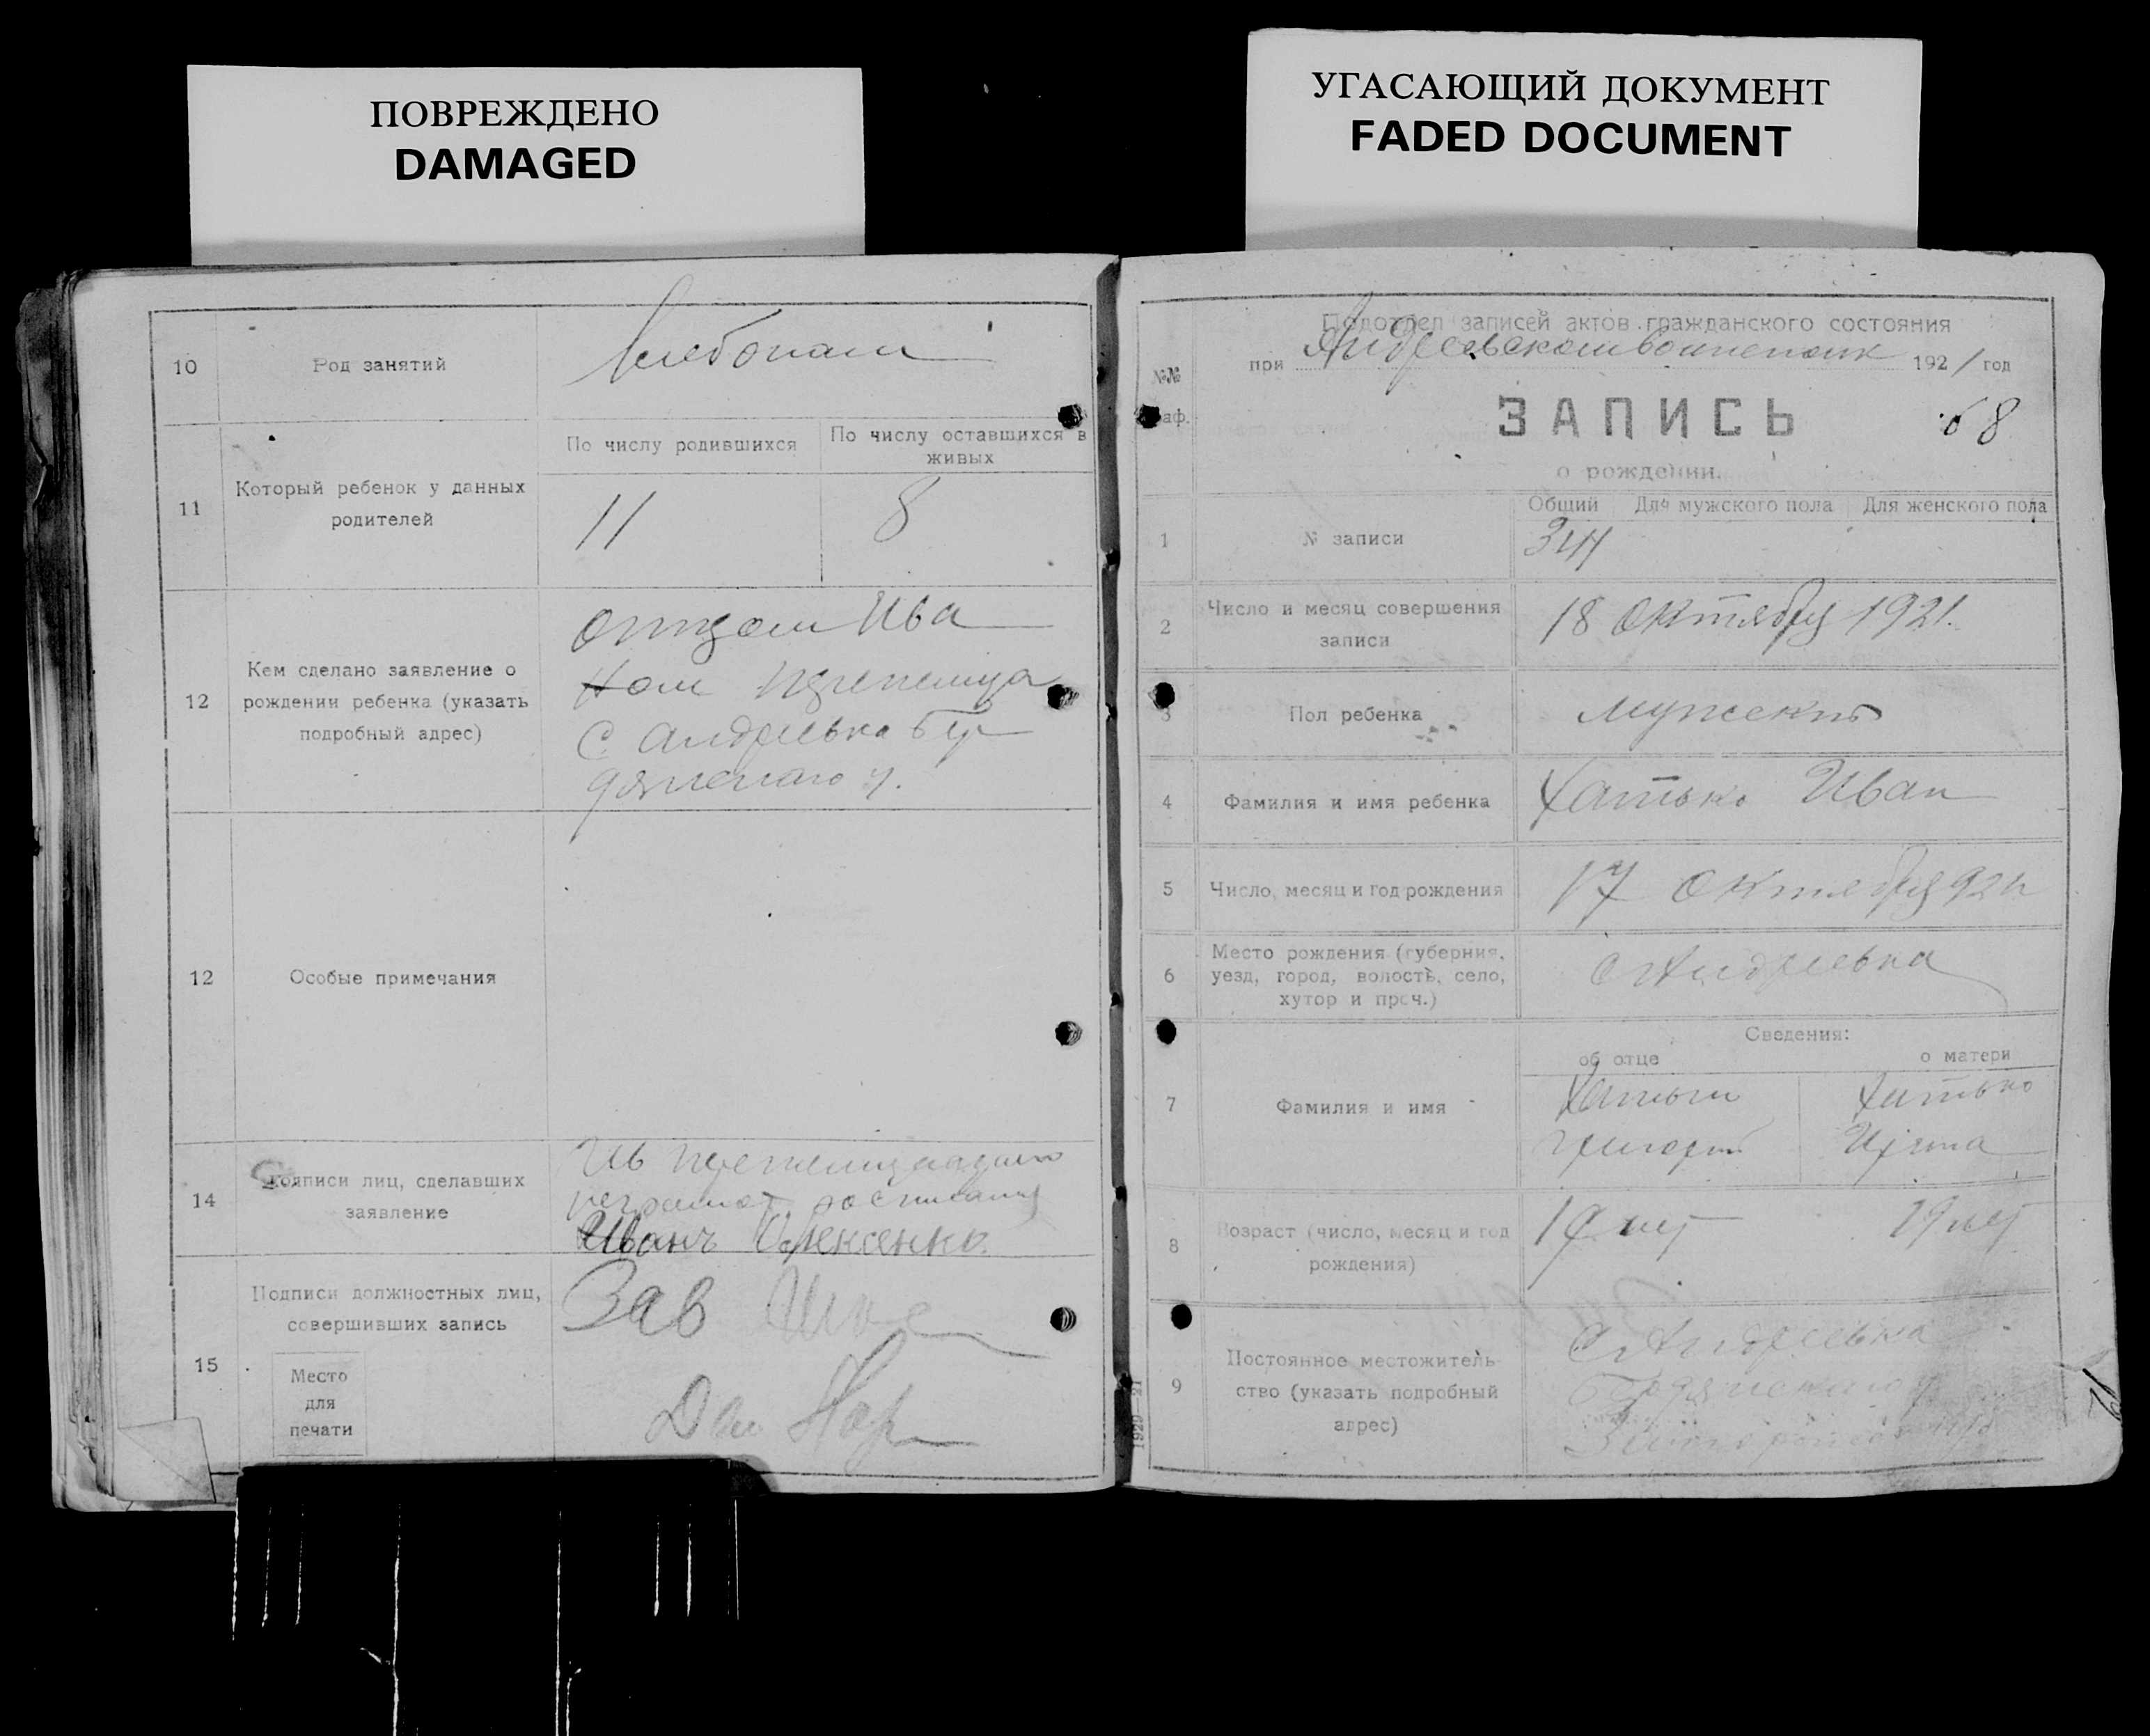 ПОВРЕЖДЕНО
DAMAGED
УГАСАЮЩИЙ ДОКУМЕНТ
FADED DOCUMENT
10
Род занятий
хлебопаш
11
Который ребенок у данных
родителей
По числу родившихся
По числу оставшихся в
живых
11
8
12
Кем сделано заявление о
рождении ребенка (указать
подробный адрес)
отцом Ива
ном
с. Андреевка Бер
дянского у.
12
Особые примечания
14
Подписи лиц, сделавших
заявление
Ив
неграмот росписался
Иванъ
15
Подписи должностных лиц,
совершивших запись
Место
для
печати
Зав
Дел
№№
граф.
Подотдел записей актов гражданского состояния
при Андреевском 1921 год
ЗАПИСЬ
68
о рождении.
1
№ записи
Общий
Для мужского пола
Для женского пола
2
Число и месяц совершения
записи
18 Октября 1921.
3
Пол ребенка
мужский
4
Фамилия и имя ребенка
Хатько Иван
5
Число, месяц и год рождения
17 Октября 921
6
Место рождения (губерния,
уезд, город, волость, село,
хутор и проч.)
с Андреевка
Сведения:
об отце
о матери
7
Фамилия и имя
Хатько
Григорий
Хатько
8
Возраст (число, месяц и год
рождения)
19 лет
19 лет
9
Постоянное местожитель-
ство (указать подробный
адрес)
с Андреевка
Бердянского у
1929—21